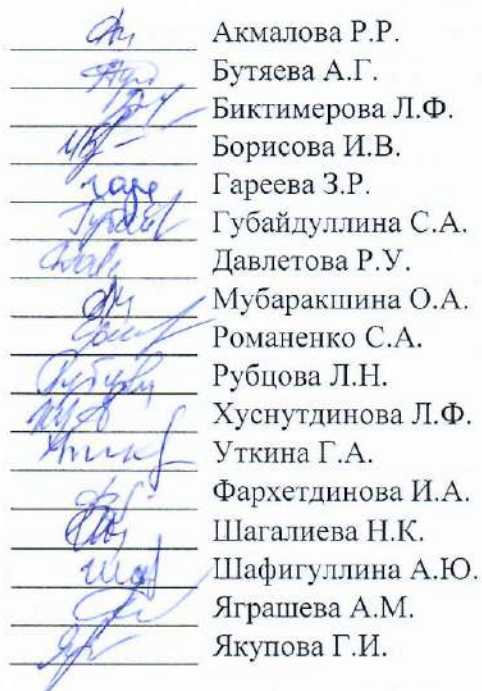 Акмалова Р.Р.
Бутяева А.Г.
Биктимерова Л.Ф.
Борисова И.В.
Гареева З.Р.
Губайдуллина С.А.
Давлетова Р.У.
Мубаракшина О.А.
Романенко С.А.
Рубцова Л.Н.
Хуснутдинова Л.Ф.
Уткина Г.А.
Фархетдинова И.А.
Шагалиева Н.К.
Шафигуллина А.Ю.
Яграшева А.М.
Якупова Г.И.